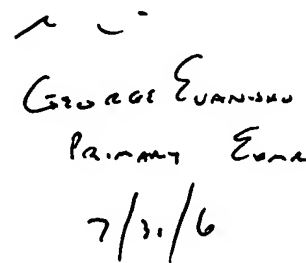 George Evanisko
Primary Exam
7/31/6